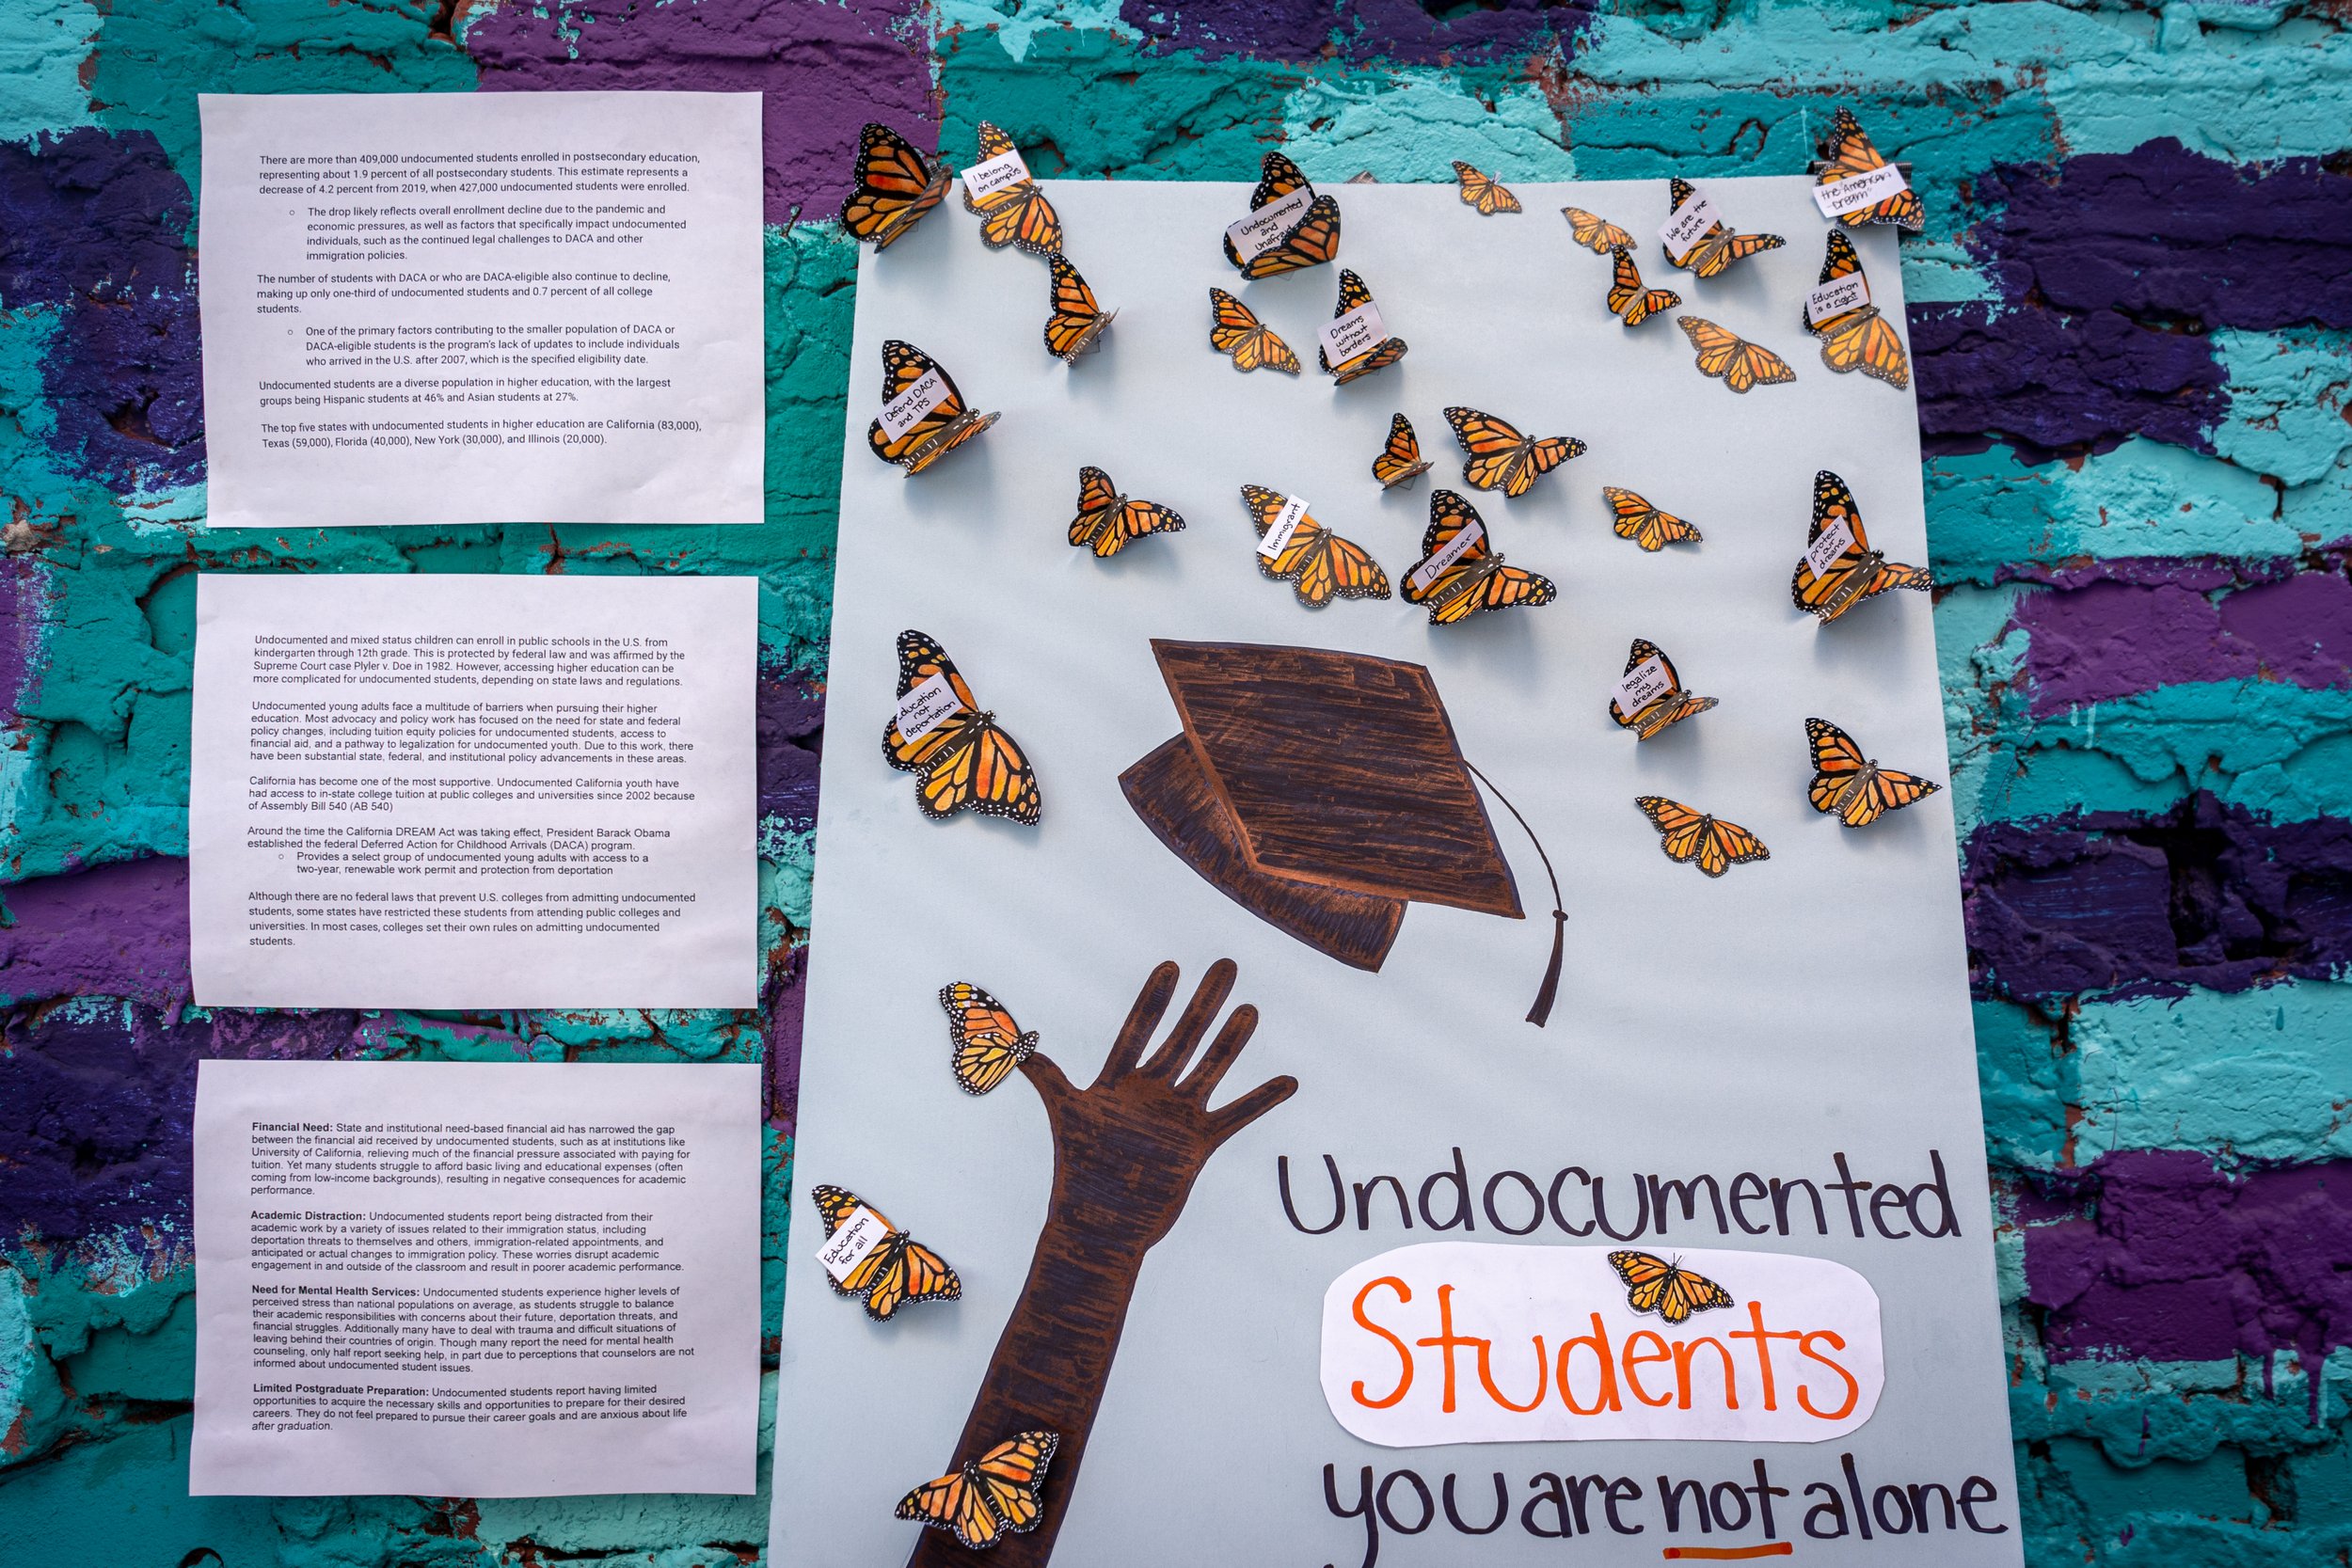 There are more than 409,000 undocumented students enrolled in postsecondary education,
representing about 1.9 percent of all postsecondary students. This estimate represents a
decrease of 4.2 percent from 2019, when 427,000 undocumented students were enrolled.
○ The drop likely reflects overall enrollment decline due to the pandemic and
economic pressures, as well as factors that specifically impact undocumented
individuals, such as the continued legal challenges to DACA and other
immigration policies.
The number of students with DACA or who are DACA-eligible also continue to decline,
making up only one-third of undocumented students and 0.7 percent of all college
students.
○ One of the primary factors contributing to the smaller population of DACA or
DACA-eligible students is the program's lack of updates to include individuals
who arrived in the U.S. after 2007, which is the specified eligibility date.
Undocumented students are a diverse population in higher education, with the largest
groups being Hispanic students at 46% and Asian students at 27%.
The top five states with undocumented students in higher education are California (83,000),
Texas (59,000), Florida (40,000), New York (30,000), and Illinois (20,000).
Undocumented and mixed status children can enroll in public schools in the U.S. from
kindergarten through 12th grade. This is protected by federal law and was affirmed by the
Supreme Court case Plyler v. Doe in 1982. However, accessing higher education can be
more complicated for undocumented students, depending on state laws and regulations.
Undocumented young adults face a multitude of barriers when pursuing their higher
education. Most advocacy and policy work has focused on the need for state and federal
policy changes, including tuition equity policies for undocumented students, access to
financial aid, and a pathway to legalization for undocumented youth. Due to this work, there
have been substantial state, federal, and institutional policy advancements in these areas.
California has become one of the most supportive. Undocumented California youth have
had access to in-state college tuition at public colleges and universities since 2002 because
of Assembly Bill 540 (AB 540)
Around the time the California DREAM Act was taking effect, President Barack Obama
established the federal Deferred Action for Childhood Arrivals (DACA) program.
○ Provides a select group of undocumented young adults with access to a
two-year, renewable work permit and protection from deportation
Although there are no federal laws that prevent U.S. colleges from admitting undocumented
students, some states have restricted these students from attending public colleges and
universities. In most cases, colleges set their own rules on admitting undocumented
students.
Financial Need: State and institutional need-based financial aid has narrowed the gap
between the financial aid received by undocumented students, such as at institutions like
University of California, relieving much of the financial pressure associated with paying for
tuition. Yet many students struggle to afford basic living and educational expenses (often
coming from low-income backgrounds), resulting in negative consequences for academic
performance.
Academic Distraction: Undocumented students report being distracted from their
academic work by a variety of issues related to their immigration status, including
deportation threats to themselves and others, immigration-related appointments, and
anticipated or actual changes to immigration policy. These worries disrupt academic
engagement in and outside of the classroom and result in poorer academic performance.
Need for Mental Health Services: Undocumented students experience higher levels of
perceived stress than national populations on average, as students struggle to balance
their academic responsibilities with concerns about their future, deportation threats, and
financial struggles. Additionally many have to deal with trauma and difficult situations of
leaving behind their countries of origin. Though many report the need for mental health
counseling, only half report seeking help, in part due to perceptions that counselors are not
informed about undocumented student issues.
Limited Postgraduate Preparation: Undocumented students report having limited
opportunities to acquire the necessary skills and opportunities to prepare for their desired
careers. They do not feel prepared to pursue their career goals and are anxious about life
after graduation.
I belong
on campus
Undocumented
and
Unafraid
We are the
future
the "American
Dream"
Education
is a right
Dreams
without
borders
Defend DACA
and TPS
Immigrant
Dreamer
protect
our
dreams
legalize
my
dreams
Education
not
deportation
Education
for all
Undocumented
Students
you are not alone